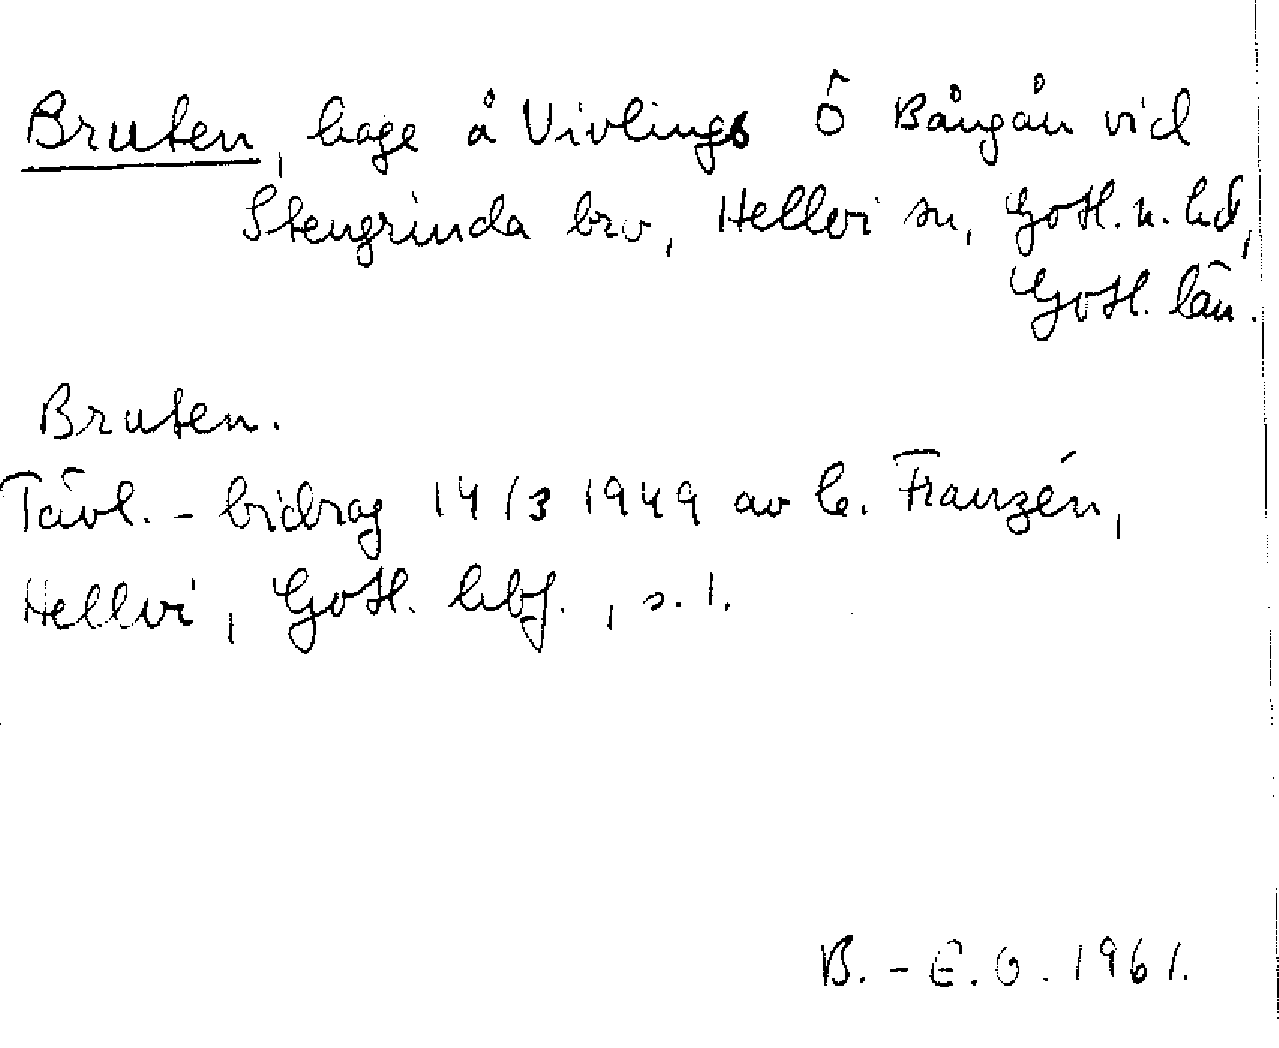 Bruten, hage å Vivlings Ö Bångån vid
Stengrinda brv, Hellvi sn, Gotl. n. hd,
Gotl. län.
Bruten.
Tävl. - bidrag 14/3 1949 av C. Franzén,
Hellvi, Gotl. hbf., s. 1.
B. - E. O. 1961.